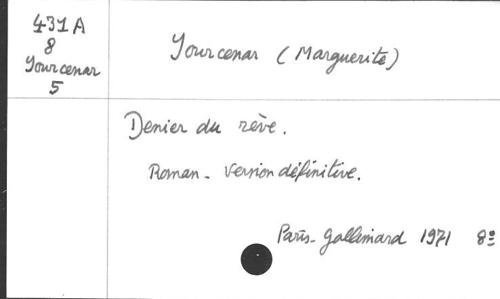 431 A
8
Yourcenar
5
Yourcenar (Marguerite)
Denier du rêve.
Roman - Version définitive.
Paris - Gallimard 1971 8º